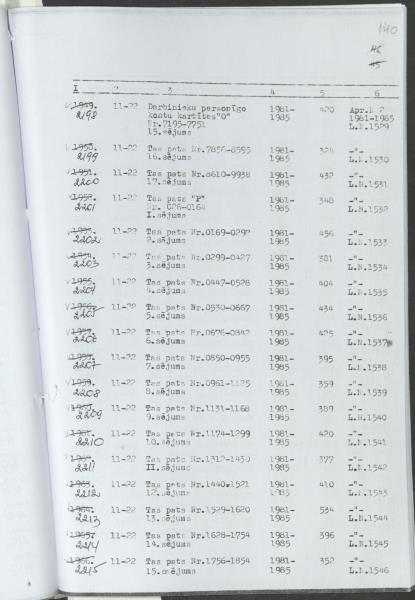 140
46
45
I 2 3 4 5 6
1949. 11-22 Darbinieku personīgo 1981- 420 Apr.N 2
2198 kontu kartītes"O" 1985 1981-1985
Nr.7195-7751 L.N.1529
15.sējums
1950. 11-22 Tas pats Nr.7856-8555 1981- 324 -"-
2199 16.sējums 1985 L.N.1530
1951. 11-22 Tas pats Nr.8610-9938 1981- 432 -"-
2200 17.sējums 1985 L.N.1531
1952. 11-22 Tas pats "P" 1981- 348 -"-
2201 Nr. 026-0164 1985 L.N.1532
I.sējums
11-22 Tas pats Nr.0169-0292 1981- 456 -"-
2202 2.sējums 1985 L.N.1533
11-22 Tas pats Nr.0299-0427 1981- 381 -"-
2203 3.sējums 1985 L.N.1534
1955. 11-22 Tas pats Nr.0447-0528 1981- 404 -"-
2204 4.sējums 1985 L.N.1535
11-22 Tas pats Nr.0530-0667 1981- 434 -"-
2205 5.sējums 1985 L.N.1536
1957. 11-22 Tas pats Nr.0676-0842 1981- 425 -"-
2206 6.sējums 1985 L.N.1537
11-22 Tas pats Nr.0850-0955 1981- 395 -"-
2207 7.sējums 1985 L.N.1538
1959. 11-22 Tas pats Nr.0961-1125 1981- 359 -"-
2208 8.sējums 1985 L.N.1539
11-22 Tas pats Nr.1131-1168 1981- 389 -"-
2209 9.sējums 1985 L.N.1540
1961. 11-22 Tas pats Nr.1174-1299 1981- 420 -"-
2210 10.sējums 1985 L.N.1541
11-22 Tas pats Nr.1312-1430 1981- 377 -"-
2211 II.sējums 1985 L.N.1542
1963. 11-22 Tas pats Nr.1440-1521 1981- 410 -"-
2212 12.sējums 1985 L.N.1543
1964. 11-22 Tas pats Nr.1529-1620 1981- 534 -"-
2213 13.sējums 1985 L.N.1544
1965. 11-22 Tas pats Nr.1628-1754 1981- 396 -"-
2214 14.sējums 1985 L.N.1545
1966. 11-22 Tas pats Nr.1756-1854 1981- 352 -"-
2215 15.sējums 1985 L.N.1546